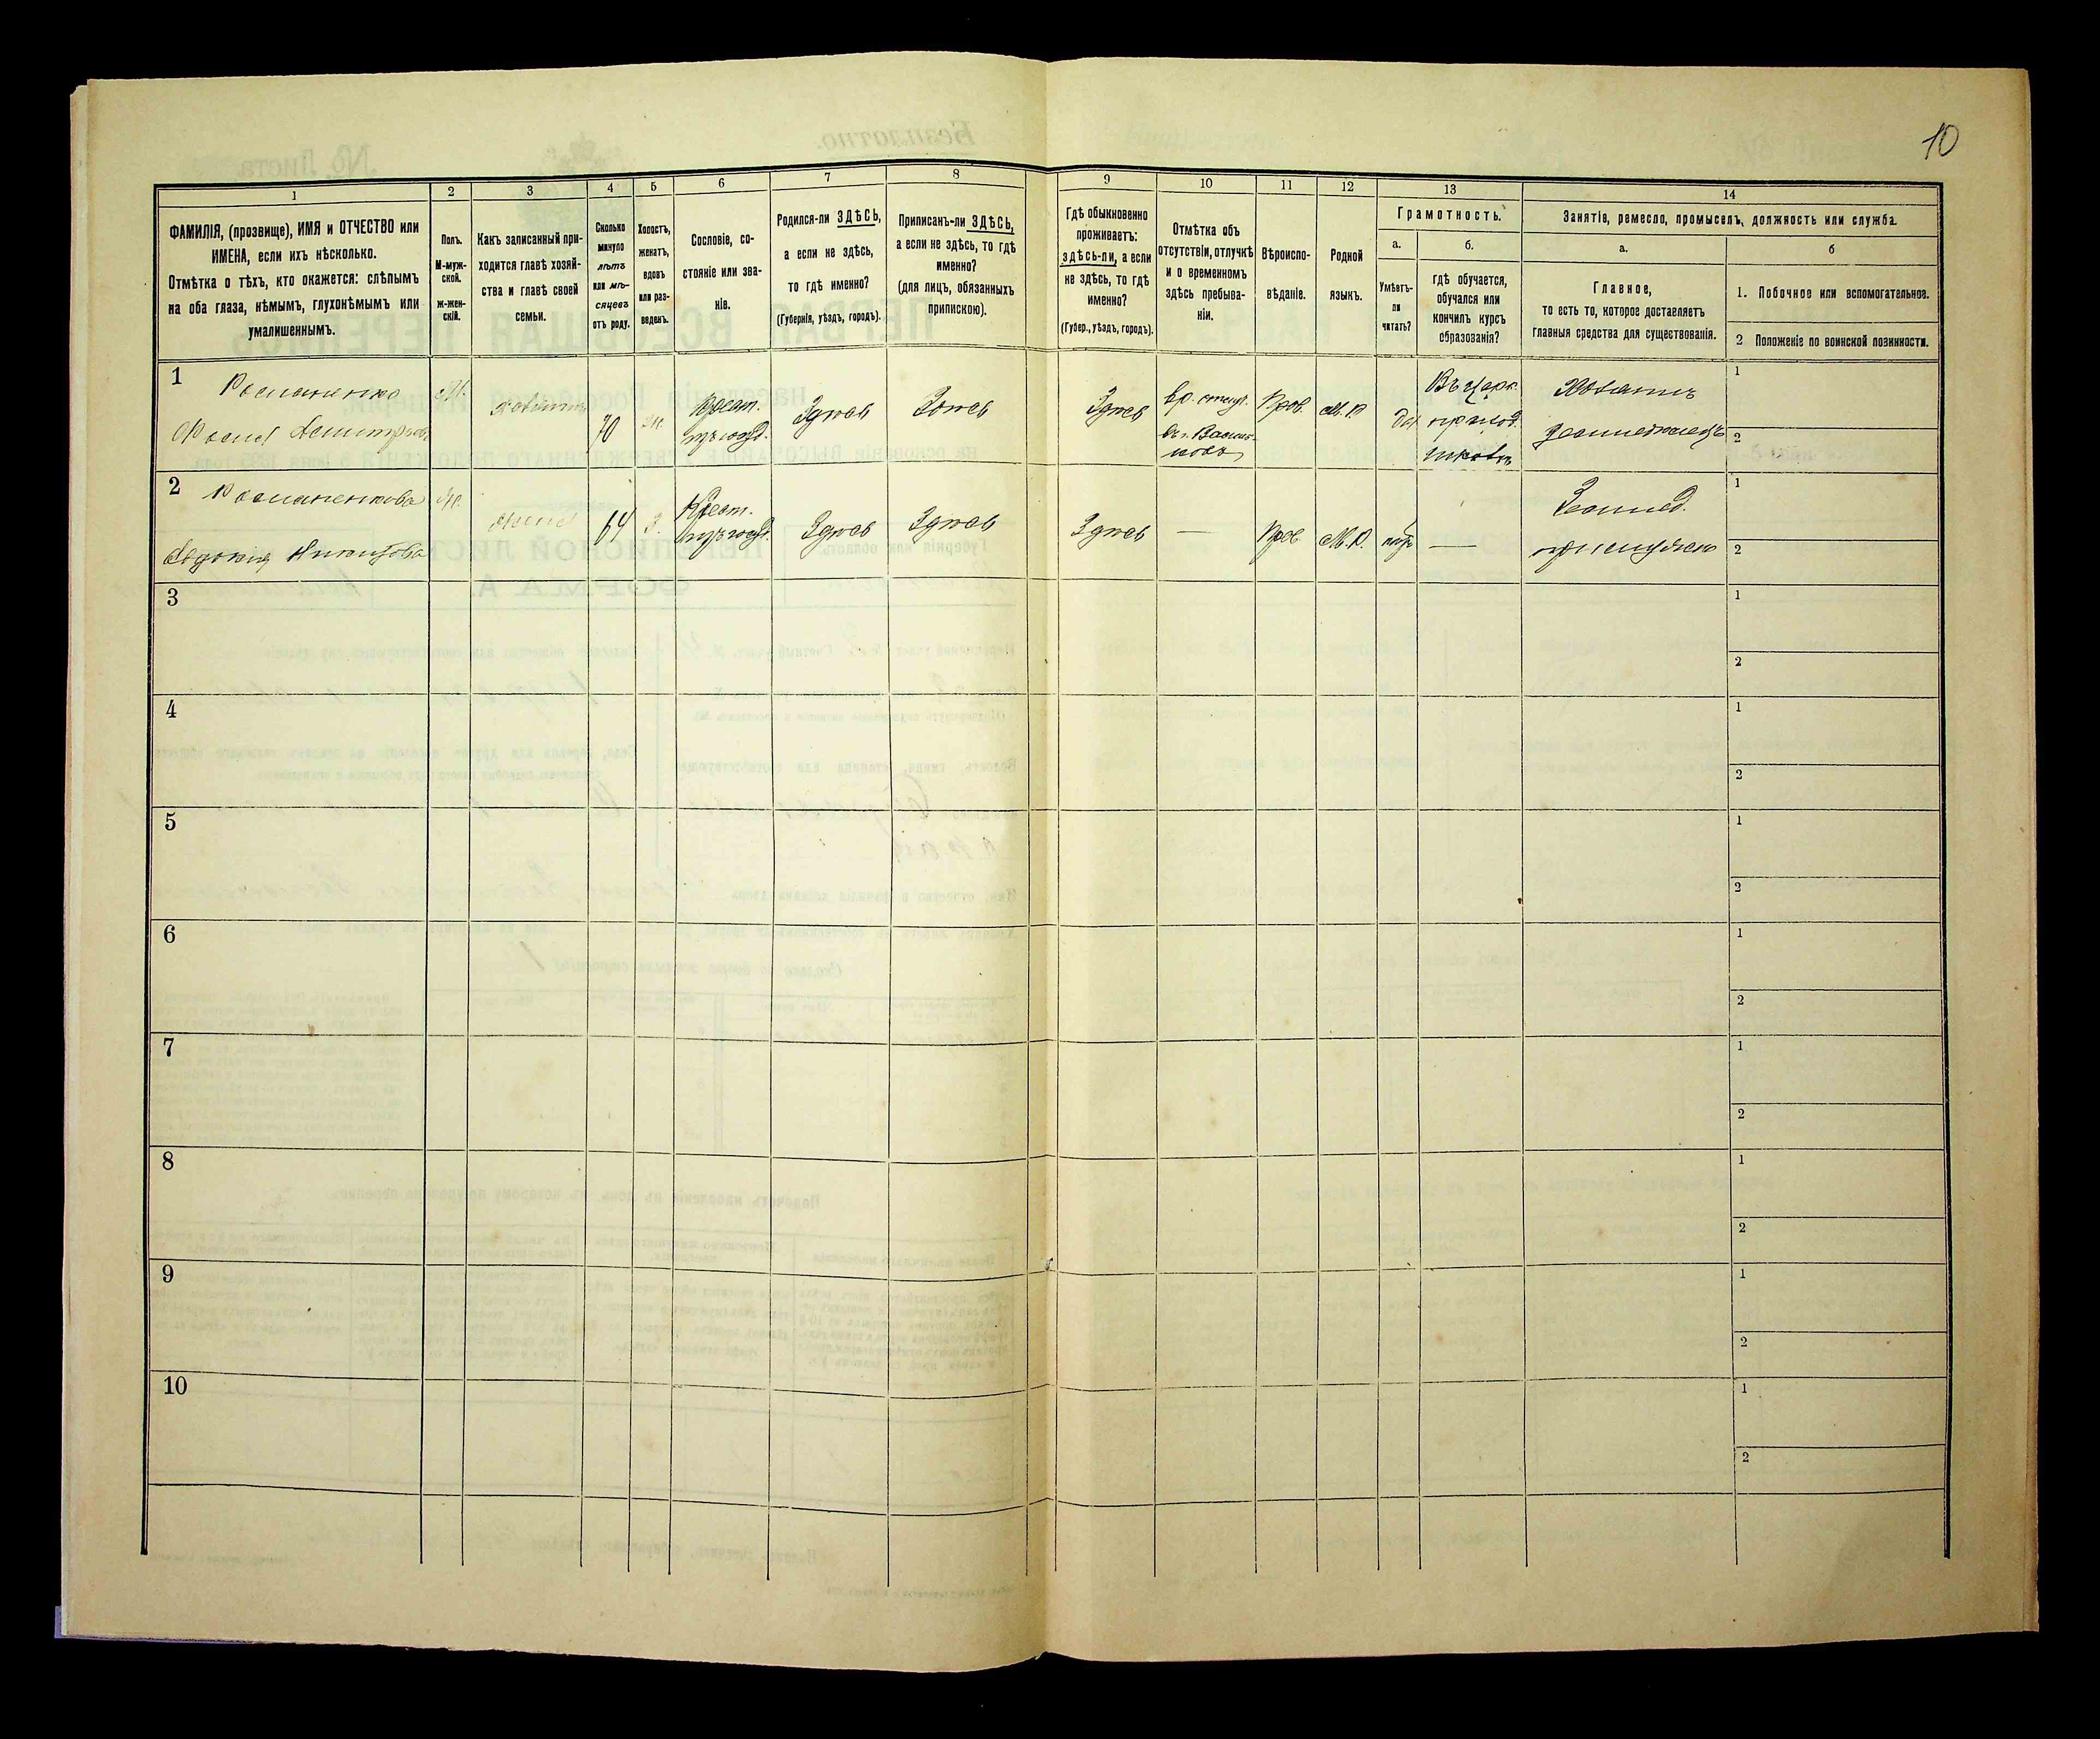 10
1 2 3 4 5 6 7 8 9 10 11 12 13 14
ФАМИЛІЯ, (прозвище), ИМЯ и ОТЧЕСТВО или ИМЕНА, если ихъ нѣсколько.
Отмѣтка о тѣхъ, кто окажется: слѣпымъ на оба глаза, нѣмымъ, глухонѣмымъ или умалишеннымъ.
Полъ.
М-мужской.
ж-женскій.
Какъ записанный приходится главѣ хозяйства и главѣ своей семьи.
Сколько минуло лѣтъ или мѣсяцевъ отъ роду.
Холостъ, женатъ, вдовъ или разведенъ.
Сословіе, состояніе или званіе.
Родился-ли ЗДѢСЬ, а если не здѣсь, то гдѣ именно?
(Губернія, уѣздъ, городъ).
Приписанъ-ли ЗДѢСЬ, а если не здѣсь, то гдѣ именно?
(для лицъ, обязанныхъ припискою).
Гдѣ обыкновенно проживаетъ: здѣсь-ли, а если не здѣсь, то гдѣ именно?
(Губер., уѣздъ, городъ).
Отмѣтка объ отсутствіи, отлучкѣ и о временномъ здѣсь пребываніи.
Вѣроисповѣданіе.
Родной языкъ.
Грамотность.
а.
Умѣетъ-ли читать?
б.
гдѣ обучается, обучался или кончилъ курсъ образованія?
Занятіе, ремесло, промыселъ, должность или служба.
а.
Главное,
то есть то, которое доставляетъ главныя средства для существованія.
б
1. Побочное или вспомогательное.
2 Положеніе по воинской повинности.
1
Романенко
Дмитріевъ
М.
70
Крест.
Здѣсь
Здѣсь
Здѣсь
вр. отсут.
Прав.
М.Р.
да
Въ Церк.
приход.
школѣ
Хозяинъ
земледѣлецъ
1
2
2 Романенкова
Евдокія
Ж.
жена
64
З.
Крест.
Здѣсь
Здѣсь
Здѣсь
—
Прав.
М.Р.
нѣтъ
—
Землед.
при мужѣ
1
2
3
1
2
4
1
2
5
1
2
6
1
2
7
1
2
8
1
2
9
1
2
10
1
2